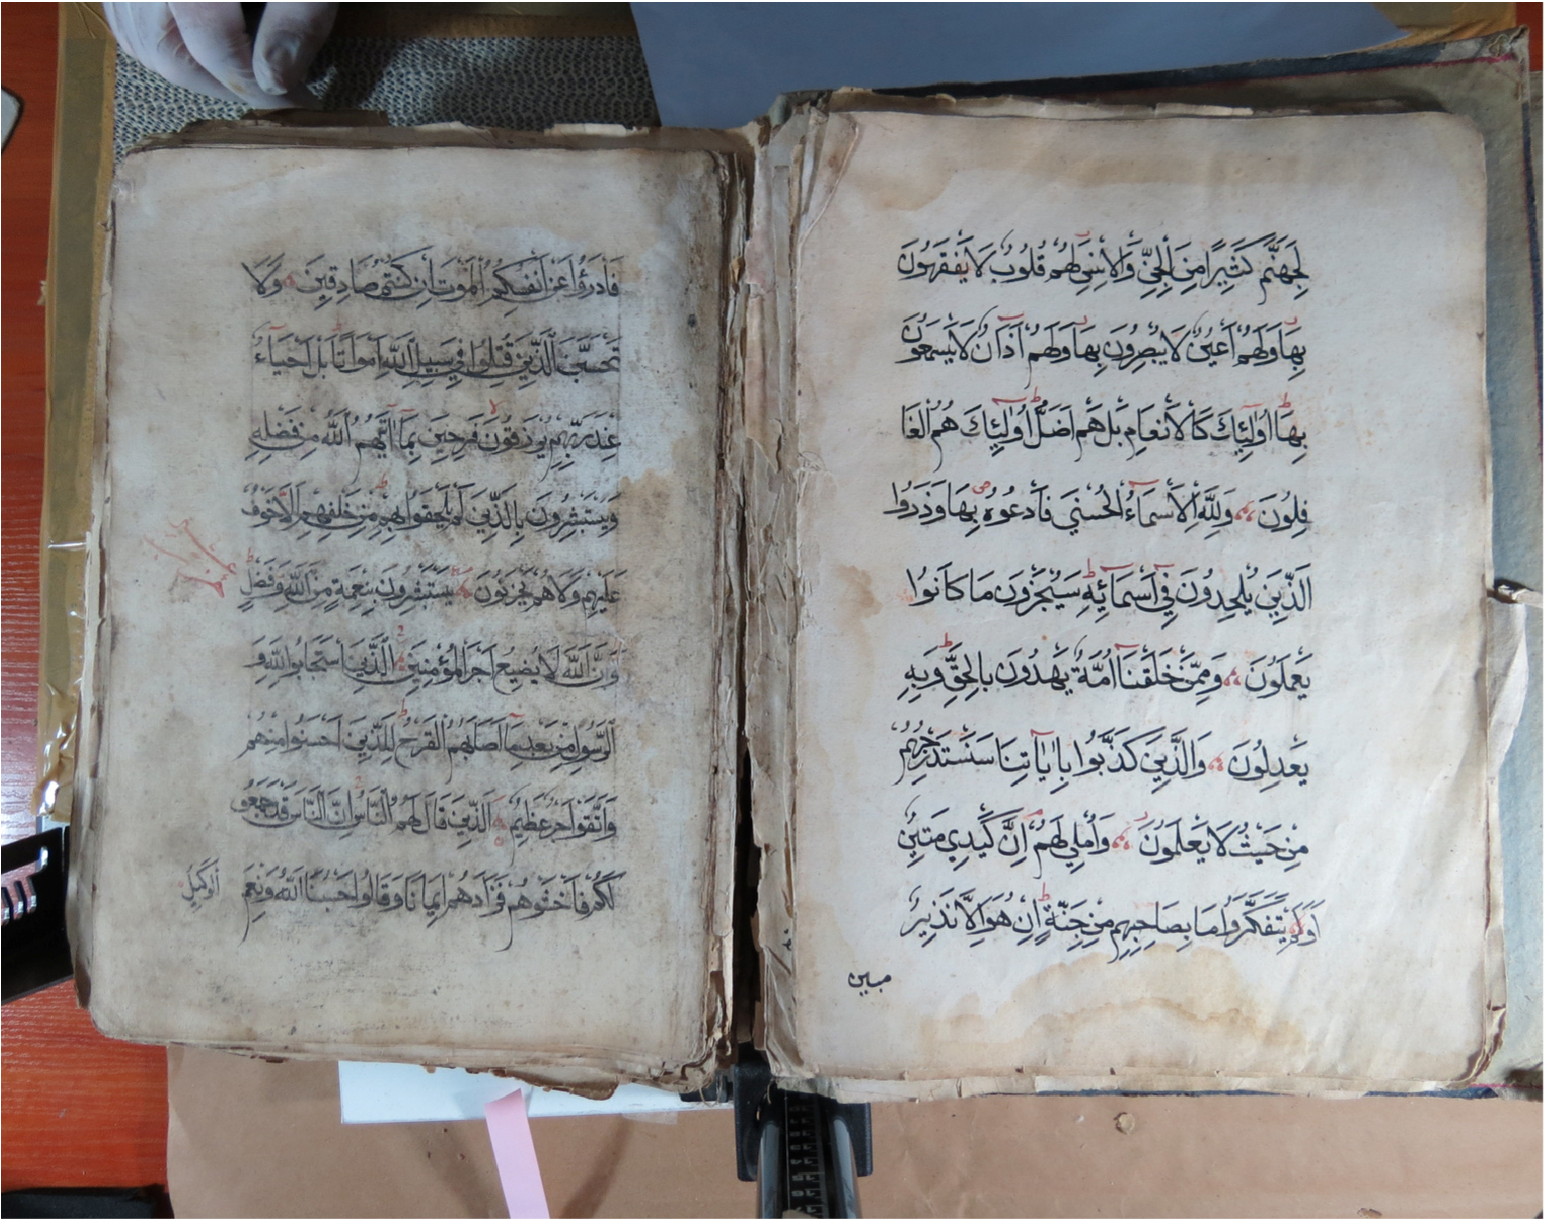 لِجَهَنَّمَ كَثِيرًا مِنَ الْجِنِّ وَالْاِنْسِ لَهُمْ قُلُوبٌ لَا يَفْقَهُونَ
بِهَا وَلَهُمْ اَعْيُنٌ لَا يُبْصِرُونَ بِهَا وَلَهُمْ اٰذَانٌ لَا يَسْمَعُونَ
بِهَا اُولٰئِكَ كَالْاَنْعَامِ بَلْ هُمْ اَضَلُّ اُولٰئِكَ هُمُ الْغَا
فِلُونَ وَلِلّٰهِ الْاَسْمَاءُ الْحُسْنٰى فَادْعُوهُ بِهَا وَذَرُوا
الَّذِينَ يُلْحِدُونَ فِي اَسْمَائِهِ سَيُجْزَوْنَ مَا كَانُوا
يَعْمَلُونَ وَمِمَّنْ خَلَقْنَا اُمَّةٌ يَهْدُونَ بِالْحَقِّ وَبِهِ
يَعْدِلُونَ وَالَّذِينَ كَذَّبُوا بِاٰيَاتِنَا سَنَسْتَدْرِجُهُمْ
مِنْ حَيْثُ لَا يَعْلَمُونَ وَاُمْلِي لَهُمْ اِنَّ كَيْدِي مَتِينٌ
اَوَلَمْ يَتَفَكَّرُوا مَا بِصَاحِبِهِمْ مِنْ جِنَّةٍ اِنْ هُوَ اِلَّا نَذِيرٌ
مبين
فَادْرَؤُا عَنْ اَنْفُسِكُمُ الْمَوْتَ اِنْ كُنْتُمْ صَادِقِينَ وَلَا
تَحْسَبَنَّ الَّذِينَ قُتِلُوا فِي سَبِيلِ اللّٰهِ اَمْوَاتًا بَلْ اَحْيَاءٌ
عِنْدَ رَبِّهِمْ يُرْزَقُونَ فَرِحِينَ بِمَا اٰتٰيهُمُ اللّٰهُ مِنْ فَضْلِهِ
وَيَسْتَبْشِرُونَ بِالَّذِينَ لَمْ يَلْحَقُوا بِهِمْ مِنْ خَلْفِهِمْ اَلَّا خَوْفٌ
عَلَيْهِمْ وَلَا هُمْ يَحْزَنُونَ يَسْتَبْشِرُونَ بِنِعْمَةٍ مِنَ اللّٰهِ وَفَضْلٍ
وَاَنَّ اللّٰهَ لَا يُضِيعُ اَجْرَ الْمُؤْمِنِينَ الَّذِينَ اسْتَجَابُوا لِلّٰهِ وَ
الرَّسُولِ مِنْ بَعْدِ مَا اَصَابَهُمُ الْقَرْحُ لِلَّذِينَ اَحْسَنُوا مِنْهُمْ
وَاتَّقَوْا اَجْرٌ عَظِيمٌ الَّذِينَ قَالَ لَهُمُ النَّاسُ اِنَّ النَّاسَ قَدْ جَمَعُوا
لَكُمْ فَاخْشَوْهُمْ فَزَادَهُمْ اِيمَانًا وَقَالُوا حَسْبُنَا اللّٰهُ وَنِعْمَ
الْوَكِيلُ